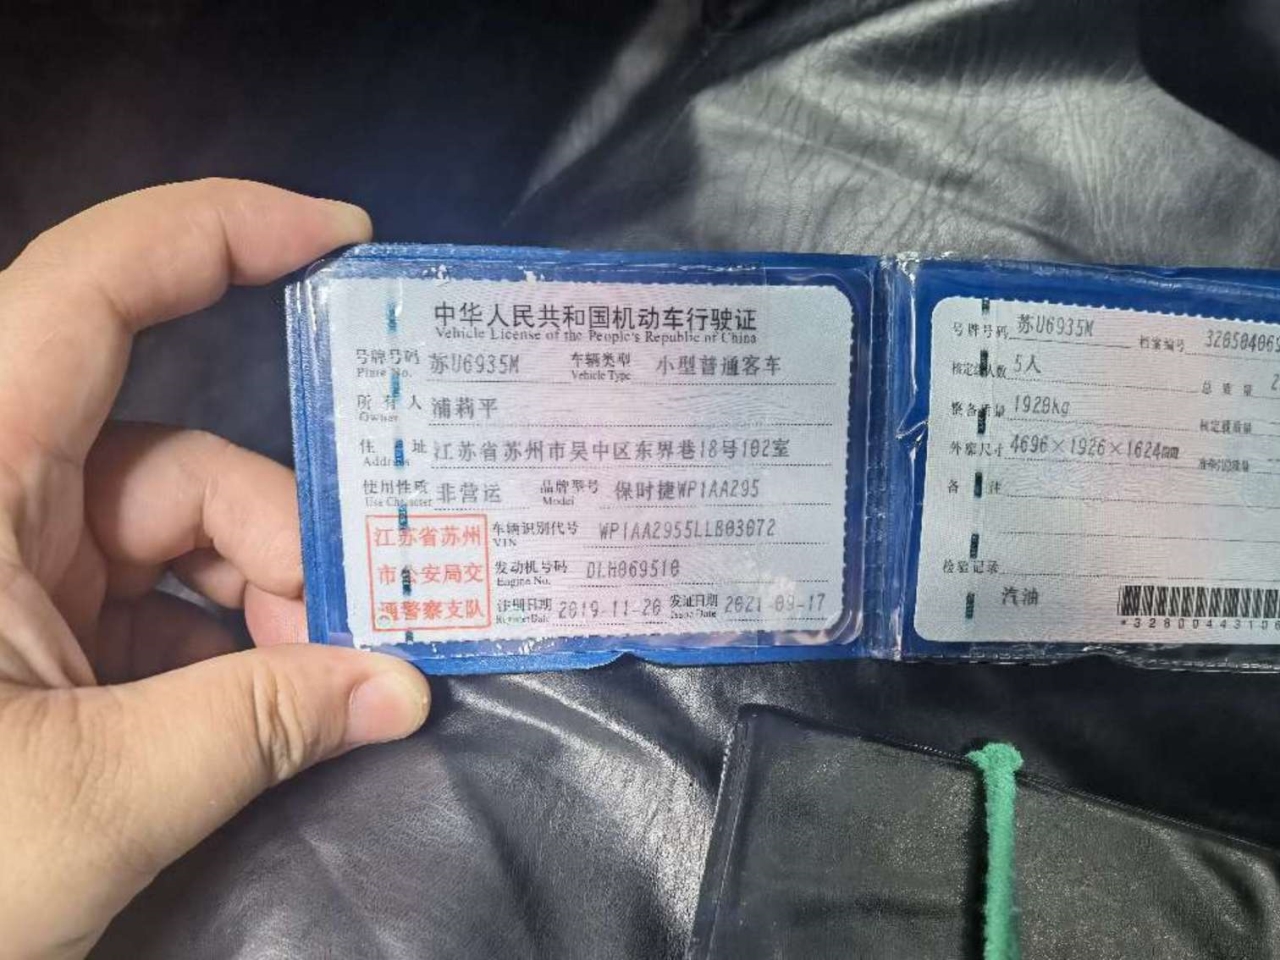 中华人民共和国机动车行驶证
Vehicle License of the People's Republic of China
号牌号码 苏U6935M 车辆类型 小型普通客车
Plate No. Vehicle Type
所有人 浦莉平
Owner
住址 江苏省苏州市吴中区东界巷18号102室
Address
使用性质 非营运 品牌型号 保时捷WP1AA295
Use Character Model
江苏省苏州
市公安局交
通警察支队
车辆识别代号 WP1AA2955LLB03072
VIN
发动机号码 DLH069510
Engine No.
注册日期 2019-11-20 发证日期 2021-09-17
Register Date Issue Date
号牌号码 苏U6935M 档案编号 328504069
核定载人数 5人 总质量 2
整备质量 1920kg 核定载质量
外廓尺寸 4696×1926×1624mm
备注
检验记录
汽油